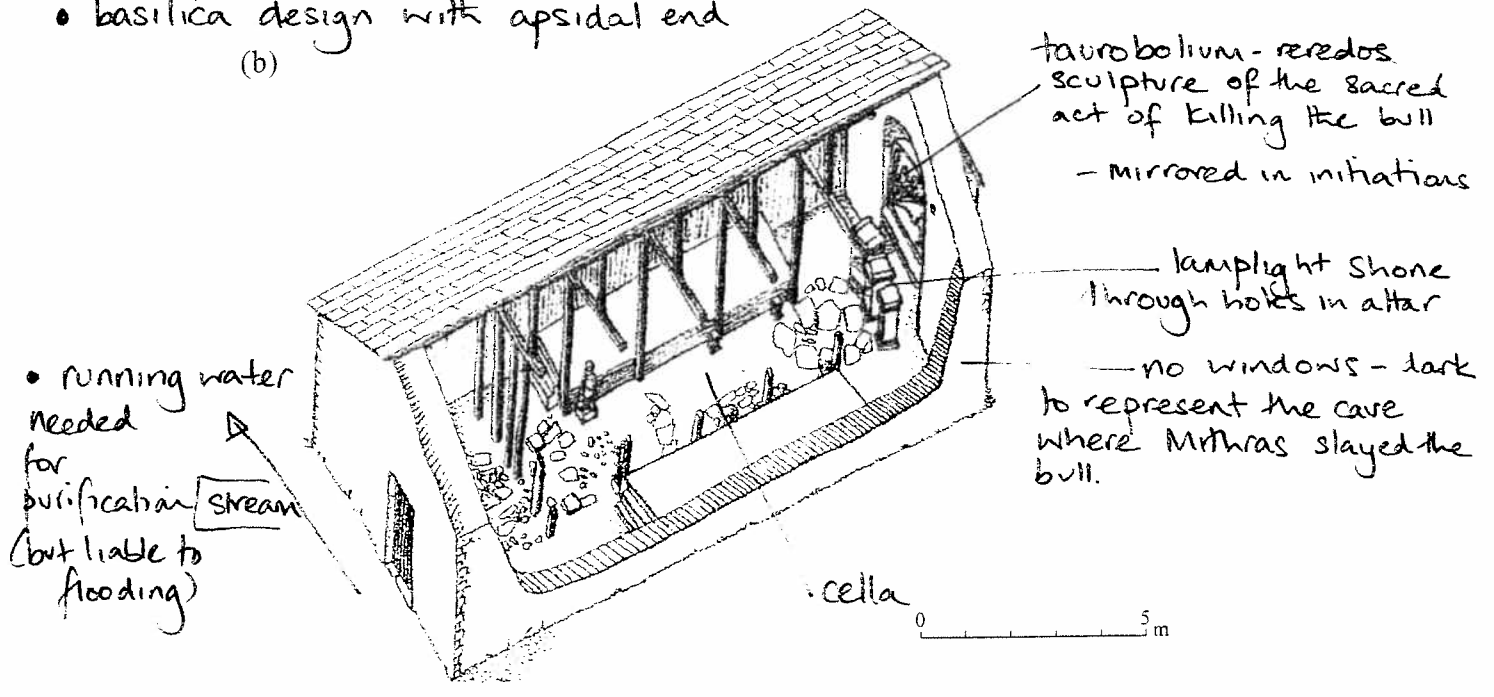 • basilica design with apsidal end
(b)
taurobolium - reredos
sculpture of the sacred
act of killing the bull
- mirrored in initiations
lamplight shone
through holes in altar
no windows - dark
to represent the cave
where Mithras slayed the
bull.
• running water
needed
for
purification stream
(but liable to
flooding)
cella
0 5 m